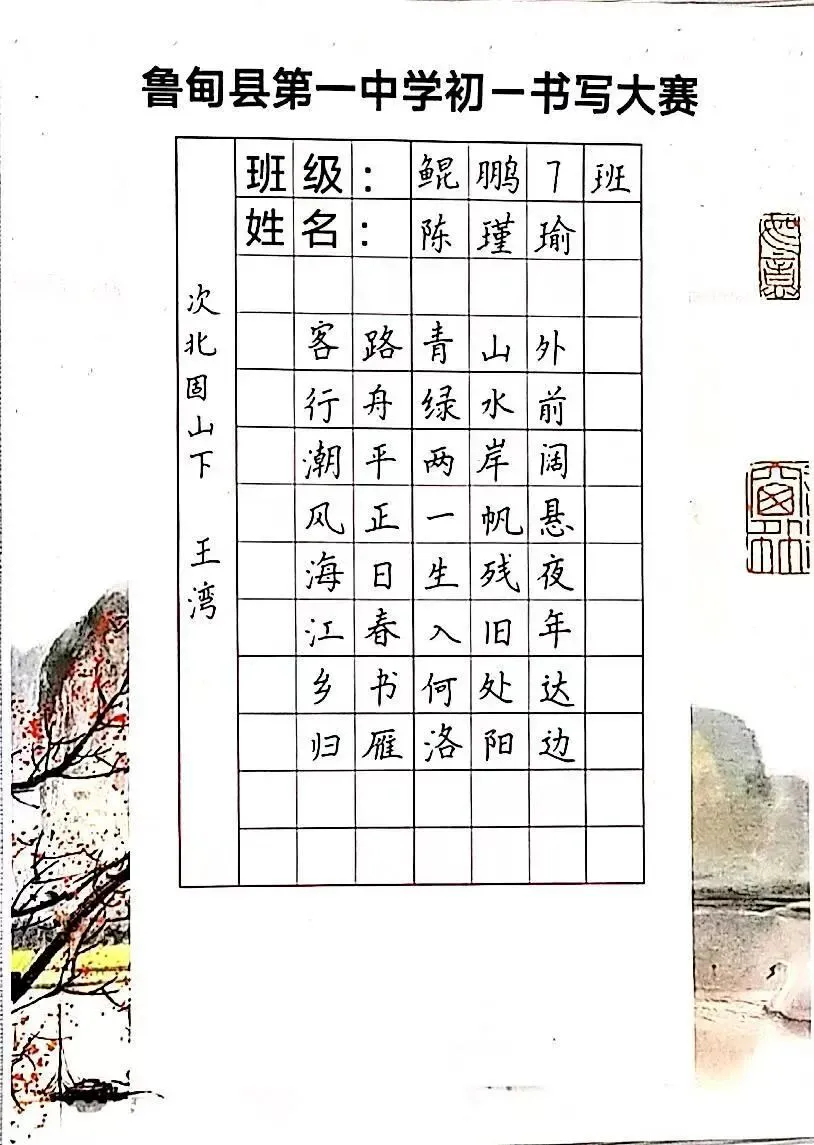 鲁甸县第一中学初一书写大赛
班级：鲲鹏7班
姓名：陈瑾瑜
次北固山下 王湾
客路青山外
行舟绿水前
潮平两岸阔
风正一帆悬
海日生残夜
江春入旧年
乡书何处达
归雁洛阳边
如意